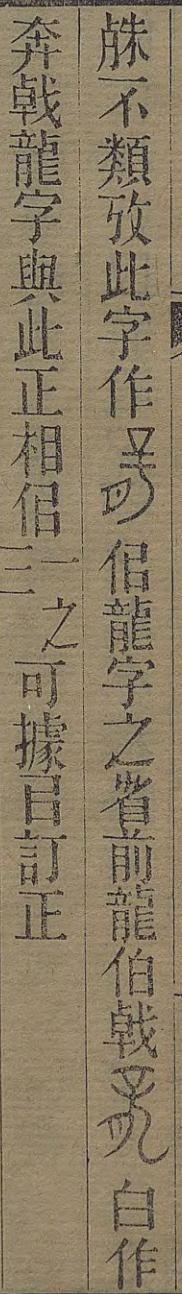 殊不類攷此字作佀龍字之省前龍伯戟白作
奔戟龍字與此正相佀一三之可據㠯訂正